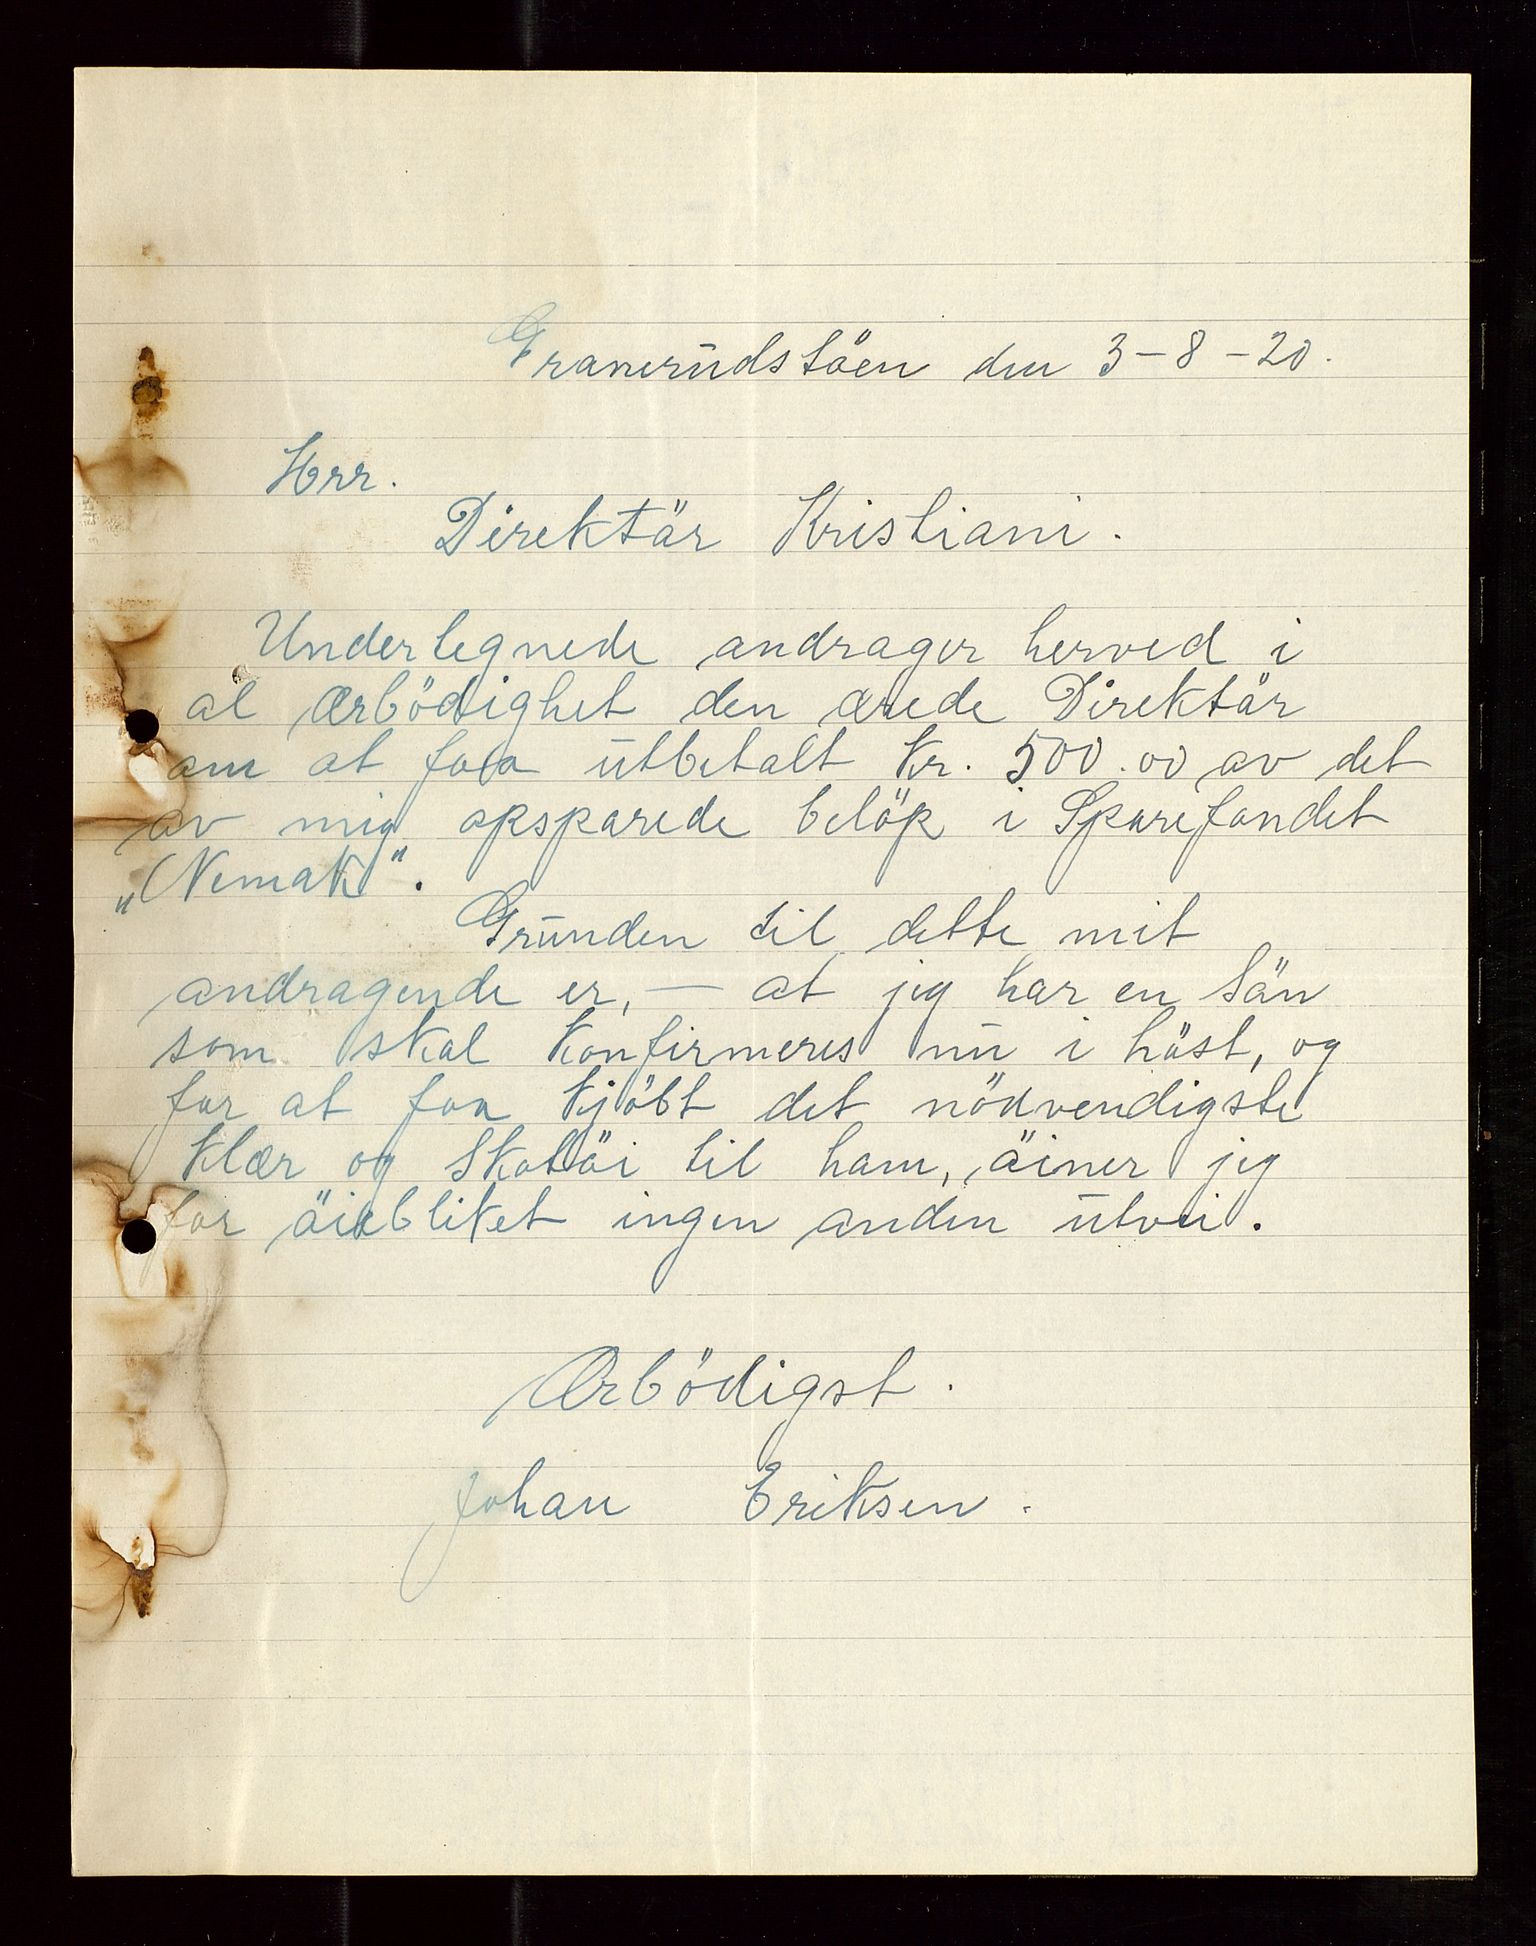 Granerudstöen den 3-8-20.
Herr.
Direktör Kristiani.
Undertegnede andrager herved i
al ærbödighet den ærede Direktör
om at faa utbetalt kr. 500.00 av det
av mig opsparede belöp i Sparefondet
„Nemak".
Grunden til dette mit
andragende er, — at jeg har en sön
som skal konfirmeres nu i höst, og
for at faa kjöbt det nödvendigste
klær og skotöi til ham, öiner jeg
for öiebliket ingen anden utvei.
Ærbödigst.
Johan Eriksen.